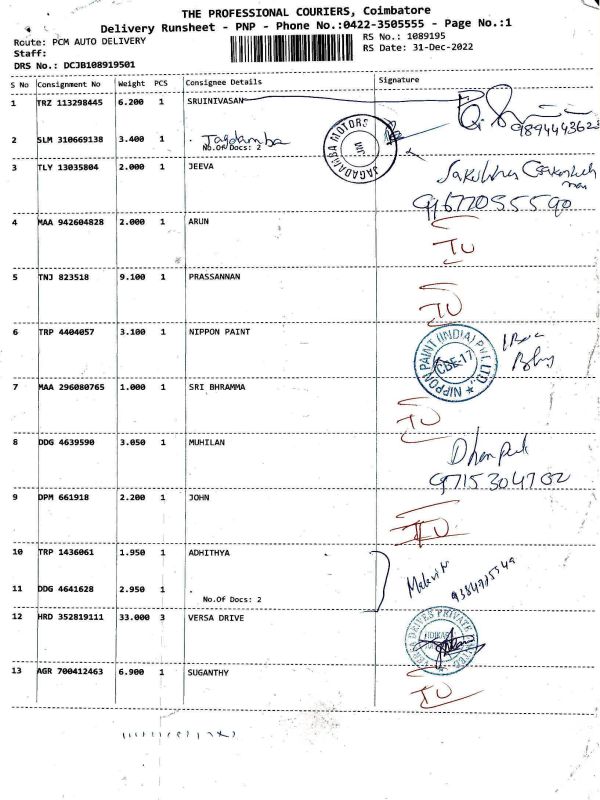 THE PROFESSIONAL COURIERS, Coimbatore
Delivery Runsheet - PNP - Phone No.:0422-3505555 - Page No.:1
Route: PCM AUTO DELIVERY
RS No.: 1089195
Staff:
RS Date: 31-Dec-2022
DRS No.: DCJB108919501
S No Consignment No Weight PCS Consignee Details Signature
1 TRZ 113298445 6.200 1 SRUINIVASAN
9894443623
2 SLM 310669138 3.400 1 Jagdamba
No.Of Docs: 2
JAGADAMBA MOTORS
3 TLY 13035804 2.000 1 JEEVA
9677055590
4 MAA 942604828 2.000 1 ARUN
IU
5 TNJ 823518 9.100 1 PRASSANNAN
IU
6 TRP 4404057 3.100 1 NIPPON PAINT
NIPPON PAINT (INDIA) PVT. LTD
CBE-17
7 MAA 296080765 1.000 1 SRI BHRAMMA
IU
8 DDG 4639590 3.050 1 MUHILAN
9715304702
9 DPM 661918 2.200 1 JOHN
IU
10 TRP 1436061 1.950 1 ADHITHYA
11 DDG 4641628 2.950 1
No.Of Docs: 2
12 HRD 352819111 33.000 3 VERSA DRIVE
VERSA DRIVES PRIVATE LIMITED
13 AGR 700412463 6.900 1 SUGANTHY
IU